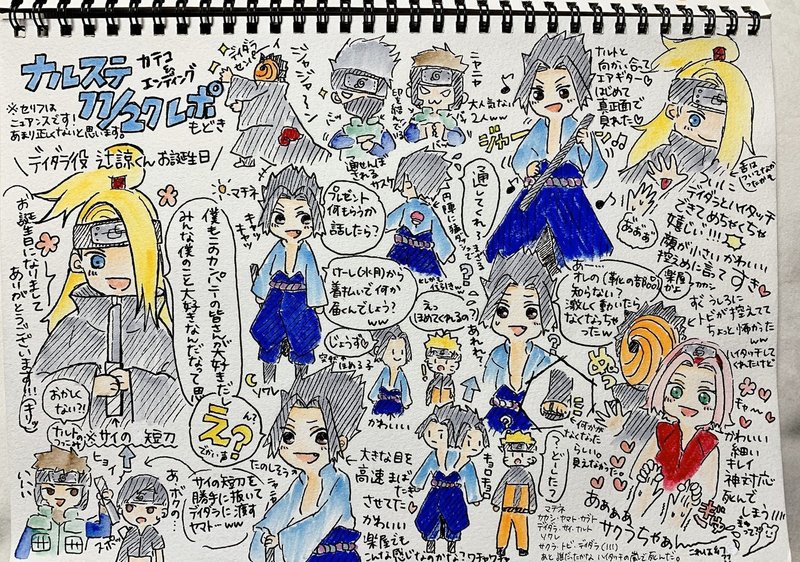 カテコ
エンディング
ナルステ
11/27 レポ
もどき
※セリフは
ニュアンスです！
あまり正しくないと思います。
デイダラ役 辻諒くん お誕生日
お誕生日になりまして
ありがとうございます!!!
おかしくない?!
※サイの短刀
ヒョイ
いい
スポッ
サイの短刀を
勝手に抜いて
デイダラに渡す
ヤマトーww
デイダラ
センパイ
ジャジャーン
ニャニャ
大人気ない
2人ww
通せんぼ
される
サスケ
通してくれ
マチネ
キャッ
キャッ
プレゼント
何もらうか
話したら？
けーし(水月)から
着払いで何か
届くんでしょう？
ww
僕もこのカンパニーの皆さんが大好きだし
みんな僕のこと大好きなんだなって思
え？
ん？
ソワレ
たのしそう
えっ
ほめてくれるの？
じょうず
かわいい
大きな目を
高速まばたき
させてた
かわいい
楽屋でも
こんな感じなのかな？
ワチャワチャ
キョロ
キョロ
ナルトと
向かい合って
エアギター
はじめて
真正面で
見れた
ジャカ
デイダラとハイタッチ
できてめちゃくちゃ
嬉しい!!!
顔が小さいかわいい
控えめに言って
すき
うしろに
トビが控えてて
ちょっと怖かった
ww
ハイタッチして
くれたけど
あれ？
あー
オレの(靴の部品)
知らない？
激しく動いたら
なくなっちゃ
ったww
何かが
なくなった
らしい。
見えなかった
どーした？
キャー
かわいい
細い
キレイ
神対応
死んで
しまう!!!!
ああああ
サクラちゃぁん
マチネ
カカシ・ヤマト・カブト
デイダラ・サイ・ナルト
ソワレ
サクラ・トビ・デイダラ(!!!)
あと誰だったかな ハイタッチの嵐で死んだ。